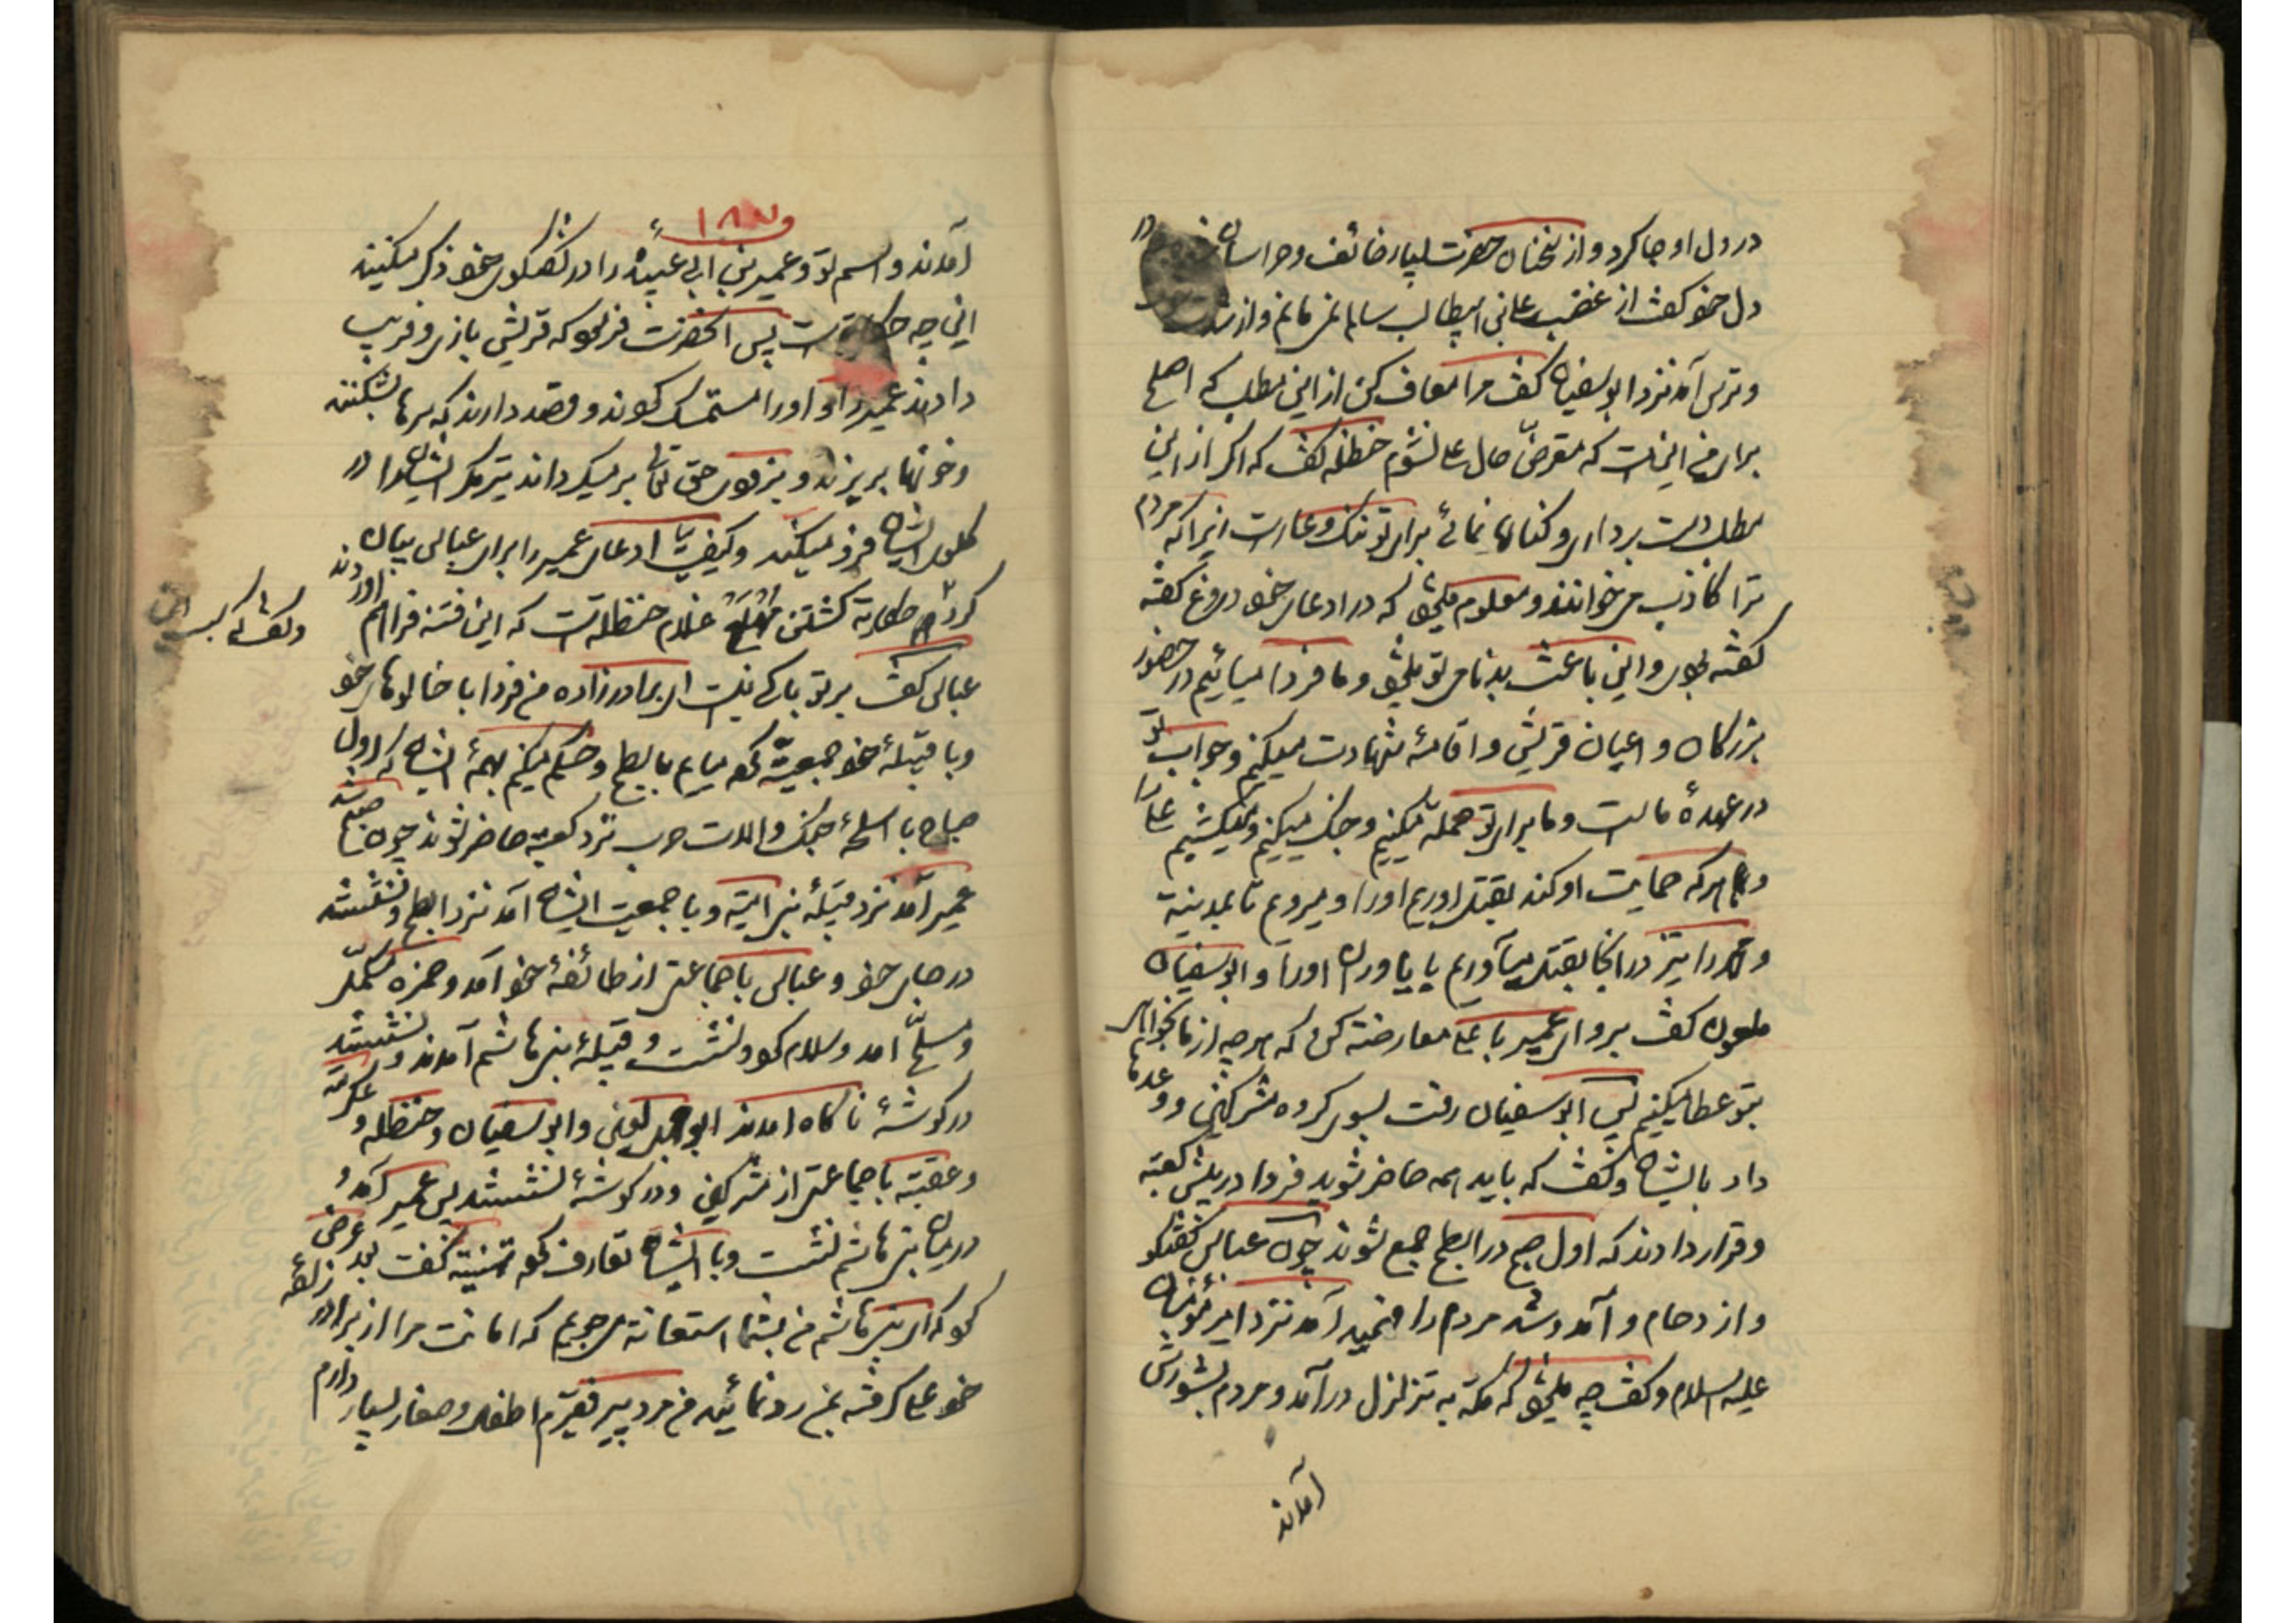 در دل او جا کرد و از سخنان حضرت بسیار خائف و هراسان شد در
دل خود گفت از غضب علی بن ابیطالب سالم نمی مانم و از
و ترس آمد نزد ابوسفیان گفت مرا معاف کن از این مطلب که اصلح
برای من اینست که متعرض حال علی نشوم حنظله گفت که اگر از این
مطلب دست برداری و کناره نمائی برای تو ننگ و عار است زیرا که مردم
ترا کاذب میخوانند و معلوم میشود که در ادعای خود دروغ گفته
گفته بودی و این باعث بدنامی تو میشود و ما فردا میائیم در حضور
بزرگان و اعیان قریش و اقامهٔ شهادت میکنیم و جواب تو
در عهدهٔ ماست و ما برای تو حمله میکنیم و جنگ میکنیم و میکشیم علی را
و هر که حمایت او کند بقتل اوریم او را و میرویم تا بمدینه
و محمد را نیز در انجا بقتل میآوریم با یاوران او را و ابوسفیان
ملعون گفت برو ای عمیر با علی معارضه کن که هر چه از ما بخواهی
بتو عطا میکنیم پس ابوسفیان رفت بسوی گروه مشرکین و وعدها
داد بایشان و گفت که باید همه حاضر شوید فردا در پیش کعبه
و قرار دادند که اول صبح در ابطح جمع شوند چون عباس گفتگو
و ازدحام و آمد و شد مردم را فهمید آمد نزد امیر مؤمنان
علیه السلام و گفت چه میشود که مکه به تزلزل در آمد و مردم بشورش
آمدند
۱۸۷
آمدند و اسم تو و عمیر بن ابی عبیده را در گفتگوی خود ذکر میکنند
این چه حکایت است پس انحضرت فرمود که قریش بازی و فریب
دادند عمیر را و او را مستمسک کردند و قصد دارند که سرها بشکنند
و خونها بریزند و بزودی حق تعالی بر میگرداند تیر مکر ایشان را در
گلوی ایشان فرو میکند و کیفیت ادعای عمیر را برای عباس بیان
کرد و کشتن مهلع غلام حنظله است که این فتنه فراهم اوردند
عباس گفت بر تو باکی نیست ای برادر زاده من فردا با خالوهای خود
و با قبیلهٔ خود جمعیت کرده میایم بابطح و حکم میکنم بهمهٔ ایشان که اول
صباح با اسلحهٔ جنگ و الات حرب نزد کعبه حاضر شوند چون صبح شد
عمیر آمد نزد قبیلهٔ بنی امیه و با جمعیت ایشان آمد نزد ابطح و نشستند
در جای خود و عباس با جماعتی از طائفهٔ خود آمد و حمزه مکمّل
و مسلّح امد و سلام کرد و نشست و قبیلهٔ بنی هاشم آمدند و نشستند
در گوشهٔ ناگاه امدند ابوجهل لعین و ابوسفیان و حنظله و عکرمه
و عقبه با جماعتی از مشرکین و در گوشهٔ نشستند پس عمیر آمد و
در میان بنی هاشم نشست و با ایشان تعارف کرده تهنیه گفت بعد عرض
کرد که ای بنی هاشم من بشما استعانه میجویم که امانت مرا از برادر زاده
خود علی گرفته بمن رد نمائید من مرد پیر فقیرم اطفال و صغار بسیار دارم